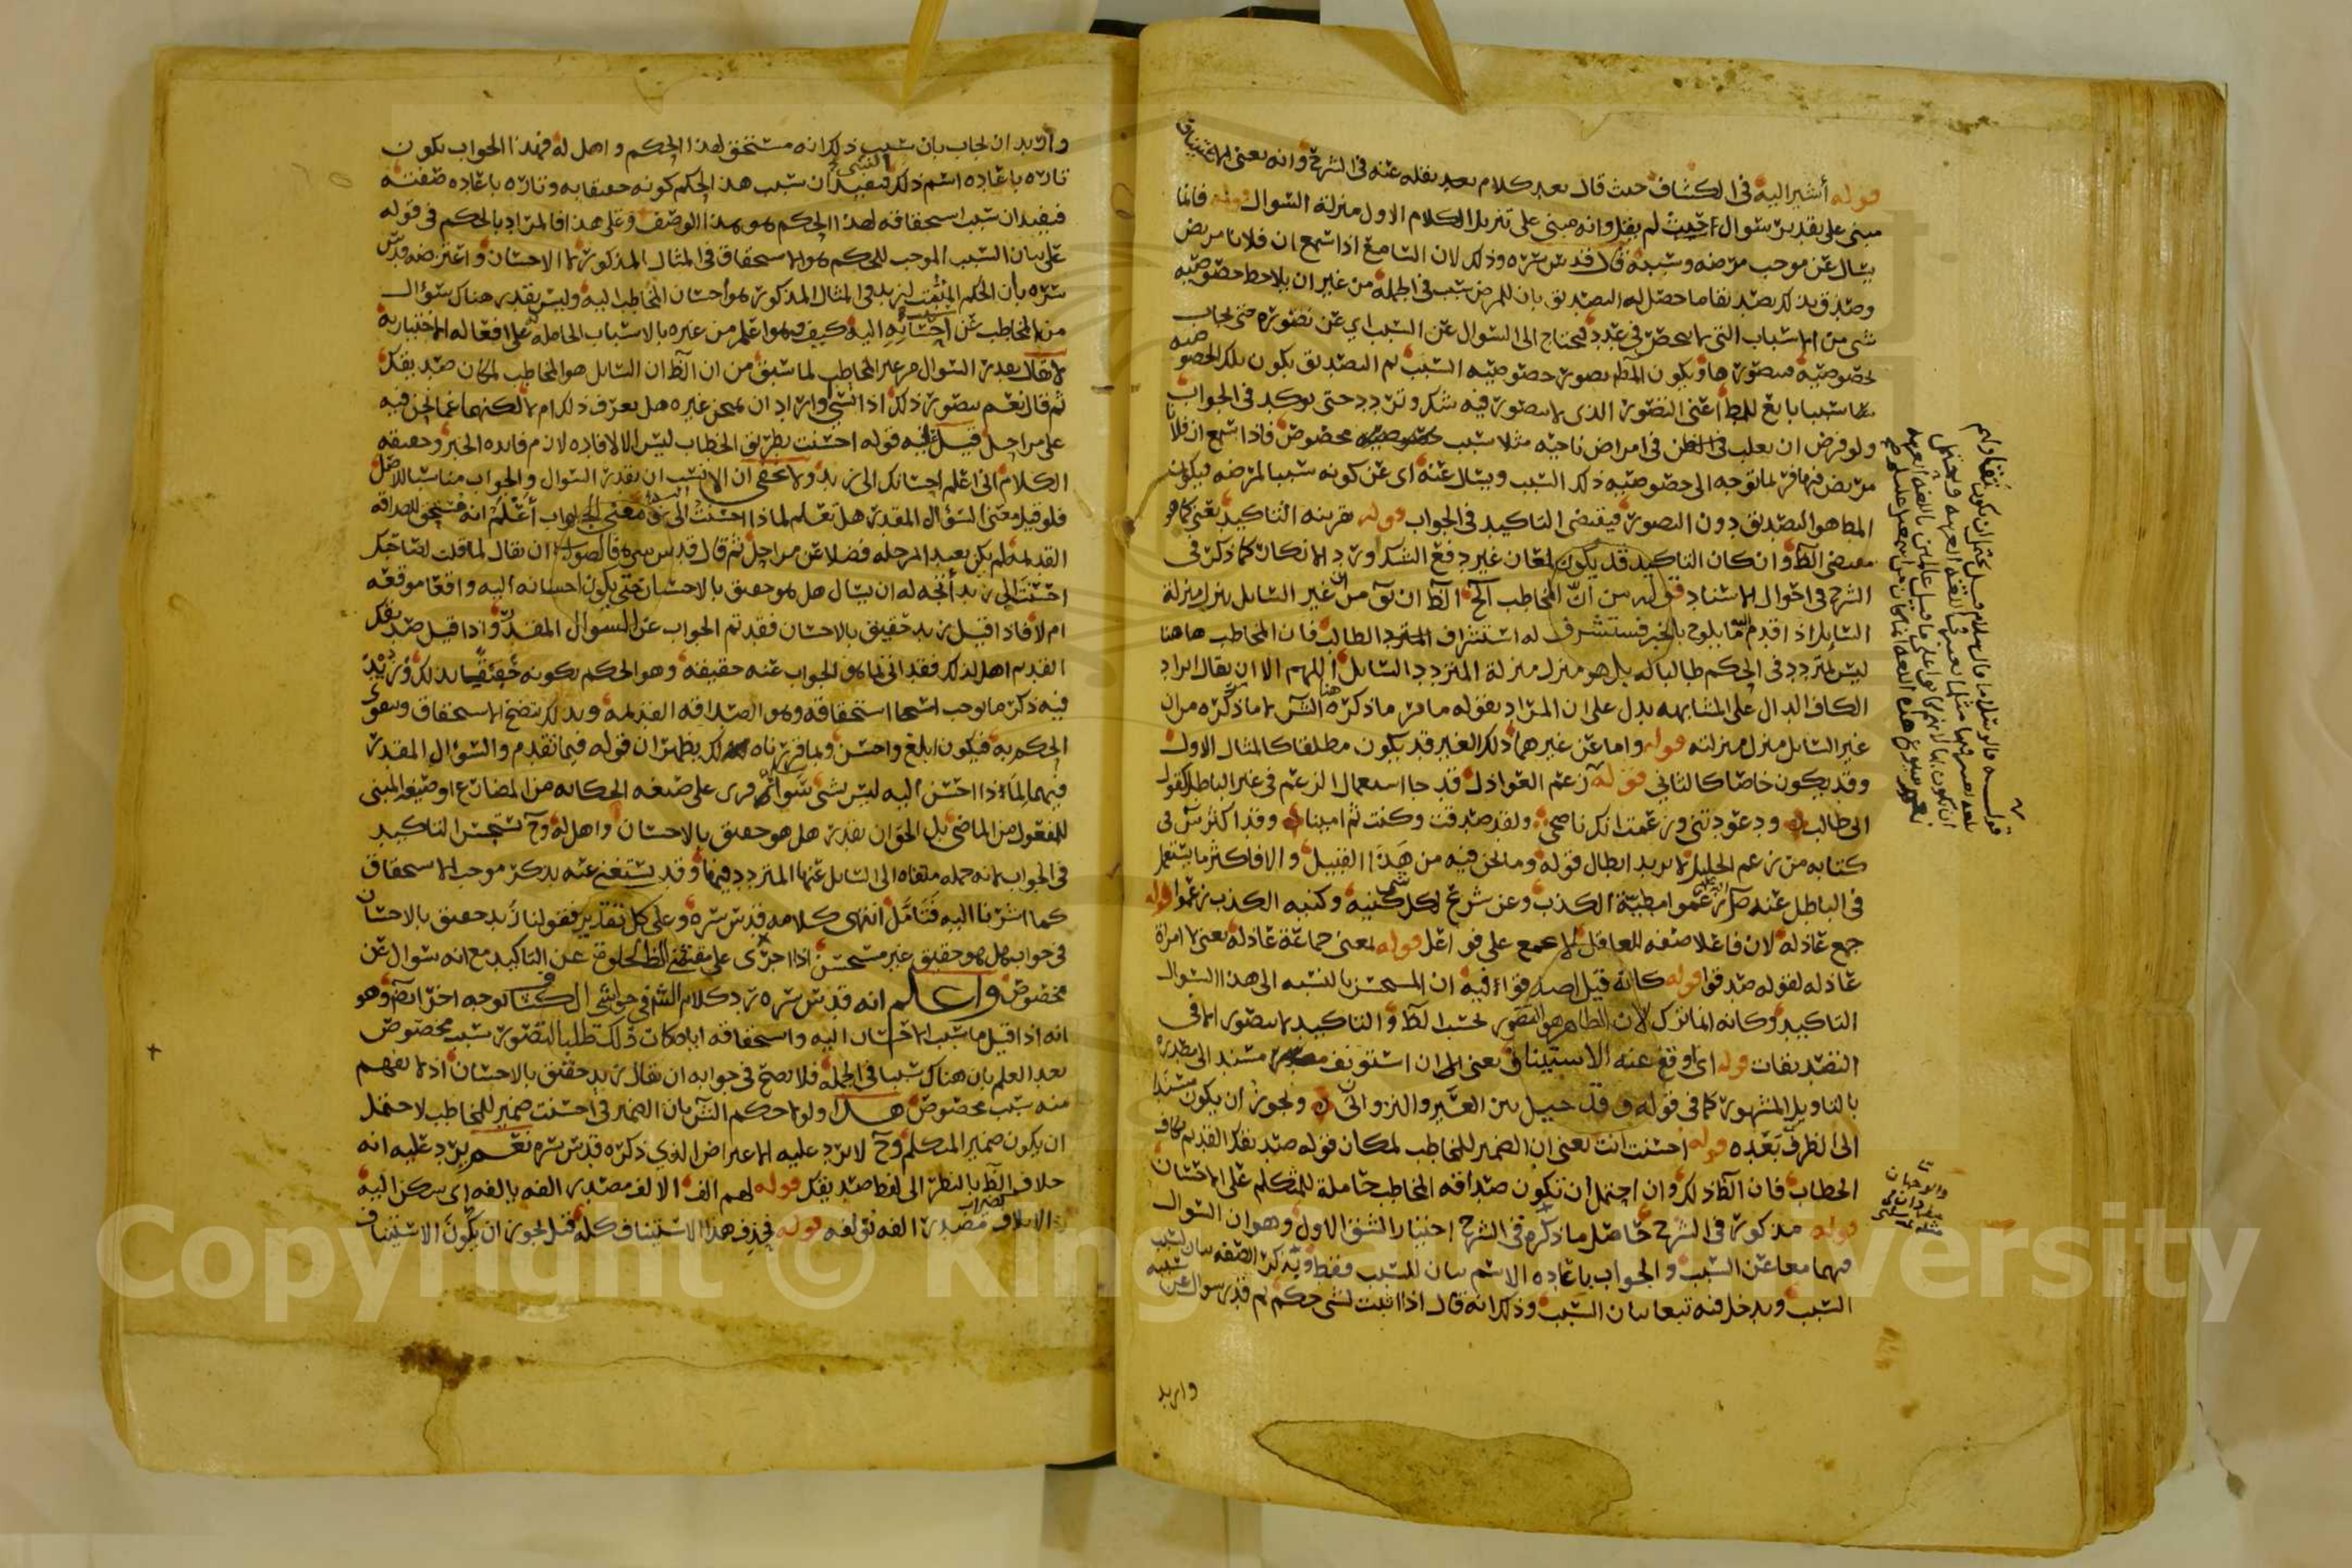 قوله أشير اليه في الكشاف حيث قال بعد كلام بعد نقله عنه في الشرح وانه يعني الاستيناف
مبني على تقدير سؤال احيث لم يقل وانه مبني على تنزيل الكلام الاول منزلة السوال قوله فانما
يسال عن موجب مرضه وسببه قال قدس سره وذلك لان السامع اذا سمع ان فلانا مريض
وصدق بذلك تصديقا ما حصل له التصديق بان للمرض سبب في الجملة من غير ان يلاحظ خصوصية
شي من الاسباب التي لا تنحصر في عدد فيحتاج الى السوال عن السبب اي عن تصوره حتى يجاب
بخصوصية فيتصورها ويكون المط تصور خصوصية السبب ثم التصديق يكون تلك الخصوصية
سببا تابع للمط اعني التصور الذي لا يتصور فيه شك وتردد حتى يوكد في الجواب
ولو فرض ان يغلب في الظن في امراض ناحيه مثلا سبب مخصوص فاذا سمع ان فلانا
مريض فيها فربما توجه الى خصوصية ذلك السبب ويسال عنه اى عن كونه سببا لمرضه فيكون
المط هو التصديق دون التصور فيقتضى التاكيد في الجواب قوله بقرينه التاكيد يعني كما هو
مقتضى الظ وان كان التاكيد قد يكون لمعان غير دفع الشك ورد الانكار كما ذكر في
الشرح في احوال الاسناد من ان المخاطب الخ الظ ان تو من غير السايل ينزل منزلة
السايل اذا قدم ما يلوح بالخبر فيستشرف له استشراف المتردد الطالب فان المخاطب هاهنا
ليس لمتردد في الحكم طالبا له بل هو منزل منزلة المتردد السايل اللهم الا ان يقال ايراد
الكاف الدال على المشابهه يدل على ان المراد بقوله ما مر ما ذكره هنا لا ما ذكره من ان
غير السايل منزل منزلته قوله واما عن غيرهما ذلك الغير قد يكون مطلقا كالمثال الاول
وقد يكون خاصا كالثاني قوله زعم العواذل قد جا استعمال الزعم في غير الباطل كقول
ابي طالب ودعوتني وزعمت انك ناصحي ولقد صدقت وكنت ثم امينا وقد اكثر س في
كتابه من زعم الخليل لا يريد ابطال قوله وما نحن فيه من هذا القبيل والا فاكثر ما يستعمل
في الباطل عنه زعموا مطية الكذب وعن شريح لكل شي كنية وكنيه الكذب زعموا قوله
جمع عاذله لان فاعلا صفه للعاقل لا يجمع على فواعل قوله بمعنى جماعة عاذلة يعني لا امراة
عاذله لقوله صدقوا قوله كانه قيل اصدقوا فيه ان المستحسن بالنسبه الى هذا السوال
التاكيد وكانه انما ترك لان الظاهر هو التصور بحسب الظ والتاكيد لا يتصور الا في
التصديقات قوله اى اوقع عنه الاستيناف يعني ان استونف مسند الى مصدره
بالتاويل المشهور كما في قوله وقد حيل بين العير والنزوان ويجوز ان يكون مسند
الى الظرف بعده قوله احسنت انت يعني ان الضمير للمخاطب لمكان قوله صديقك القديم بكاف
الخطاب فان الظ ذلك وان احتمل ان تكون صداقه المخاطب حاملة للمتكلم على الاحسان
قوله مذكور في الشرح حاصل ما ذكره في الشرح اختيار الشق الاول وهو ان السوال
فيهما معا عن السبب والجواب باعاده الاسم بيان للسبب فقط وبذكر الصفه بيان لسبب
السبب ويدخل فيه تبعا بيان السبب وذلك انه قال اذا اثبت لشي حكم ثم قدر سوال عن سببه
واريد
واريد ان يجاب بان سبب ذلك انه مستحق لهذا الحكم واهل له فهذا الجواب يكون
تارة باعاده اسم ذلك الشي فيفيد ان سبب هذا الحكم كونه حقيقا به وتاره باعاده صفته
فيفيد ان سبب استحقاقه لهذا الحكم هو هذا الوصف وعلى هذا فالمراد بالحكم في قوله
على بيان السبب الموجب للحكم هو الاستحقاق في المثال المذكور لا الاحسان واعترضه قدس
سره بان الحكم المثبت لزيد في المثال المذكور هو احسان المخاطب اليه وليس يقدر هناك سوال
من المخاطب عن سبب احسانه اليه كيف وهو اعلم من غيره بالاسباب الحاملة على افعاله الاختيارية
لا يقال يقدر السوال من غير المخاطب لما سبق من ان الظ ان السايل هو المخاطب لمكان صديقك
ثم قال نعم يتصور ذلك اذا نسي او اراد ان يمتحن غيره هل يعرف ذلك ام لا لكنها عما نحن فيه
على مراحل قيل عليه قوله احسنت بطريق الخطاب ليس الا لافاده لازم فايده الخبر وحقيقه
الكلام اني اعلم احسانك الى زيد ولا يخفى ان الانسب ان يقدر السوال والجواب مناسبا للاصل
فلو قيل معنى السؤال المقدر هل تعلم لماذا احسنت الى زيد ومعنى الجواب أعلم انه مستحق للصداقه
القديمه لم يكن بعيد المرحله فضلا عن مراحل ثم قال قدس سره فالصواب ان يقال لما قلت لصاحبك
احسنت الى زيد اتجه له ان يسال هل هو حقيق بالاحسان حتى يكون احسانه اليه واقعا موقعه
ام لا فاذا قيل زيد حقيق بالاحسان فقد تم الجواب عن السوال المقدر واذا قيل صديقك
القديم اهل لذلك فقد اتى بما هو الجواب عنه حقيقه وهو الحكم بكونه حقيقا بذلك وزيد
فيه ذكر ما يوجب استحقاقه وهو الصداقه القديمه وبذلك يتضح الاستحقاق ويتقوى
الحكم به فيكون ابلغ واحسن وبما قررناه لك يظهر ان قوله فيما تقدم والسؤال المقدر
فيهما لماذا احسن اليه ليس بشي سواء قرى على صيغه الحكايه من المضارع او صيغه المبني
للمفعول من الماضي بل الحق ان يقدر هل هو حقيق بالاحسان واهل له وح يستحسن التاكيد
في الجواب لانه جمله ملقاه الى السايل عنها المتردد فيها وقد يستغنى عنه بذكر موجب الاستحقاق
كما اشرنا اليه فتأمل انتهى كلامه قدس سره وعلى كل تقدير فقولنا زيد حقيق بالاحسان
في جواب هل هو حقيق غير مستحسن اذا اجرى على مقتضى الظ لخلوه عن التاكيد مع انه سوال عن
مخصوص واعلم انه قدس سره رد كلام الش في حواشي الكشاف بوجه اخر ايضا وهو
انه اذا قيل ما سبب الاحسان اليه واستحقاقه اياه كان ذلك طلبا لتصور سبب مخصوص
بعد العلم بان هناك سببا في الجملة فلا يصح في جوابه ان يقال زيد حقيق بالاحسان اذ لا يفهم
منه سبب مخصوص هذا ولولا حكم الش بان الضمير في احسنت ضمير للمخاطب لاحتمل
ان يكون ضمير المتكلم وح لا يرد عليه الاعتراض الذي ذكره قدس سره نعم يرد عليه انه
خلاف الظ بالنظر الى لفظ صديقك قوله لهم الف الالف مصدر الفه يالفه اى سكن اليه
والايلاف مصدر الفه يولفه قوله فحذف هذا الاستيناف كله قيل يجوز ان يكون الاستيناف
Copyright © King Saud University